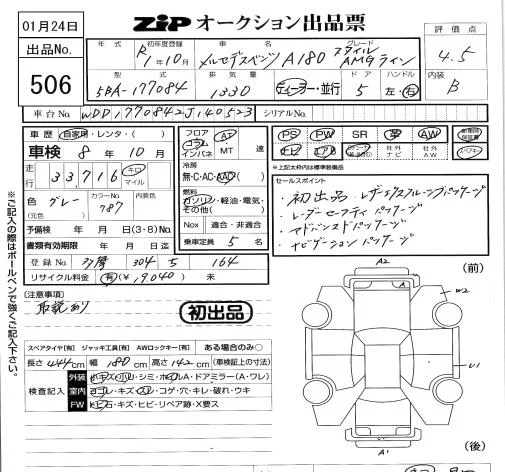 01月24日
ZiP オークション出品票
出品No.
506
年式 初年度登録 車名 グレード
R1年10月 メルセデスベンツ A180 スタイル AMGライン
評価点
4.5
型式 排気量 ドア ハンドル
5BA-177084 1330 ディーラー・並行 5 左・右
内装
B
車台No. WDD1770842J140523 シリアルNo.
車歴 自家用・レンタ・( )
車検 8年 10月
走行 33,716 キロ マイル
色 グレー (元色) カラーNo. 787 内装色
予備検 年 月 日(3・8)No.
書類有効期限 年 月 日迄
登録No. 多摩 304 ち 164
リサイクル料金 有(¥19040) 未
フロア コラム インパネ AT MT 速
冷房 無・C・AC・AAC
燃料 ガソリン・軽油・電気・その他( )
Nox 適合・非適合
乗車定員 5 名
PS PW SR 革 AW
ナビ エアB 社外ナビ 社外AW
新車時保証書
※上記太枠内は標準装備品
セールスポイント
・初出品・レザーエクスクルーシブパッケージ
・レーダーセーフティパッケージ
・アドバンスドパッケージ
・ナビゲーションパッケージ
[注意事項]
取説あり
初出品
スペアタイヤ[有] ジャッキ工具[有] AWロックキー[有] ある場合のみ○
長さ 444cm 幅 180cm 高さ 142cm (車検証上の寸法)
検査記入
外装 小キズ・小凹・シミ・ホイルA・ドアミラー(A・ワレ)
室内 ヨゴレ・キズ・スレ・コゲ・穴・キレ・破れ・ウキ
FW トビ石・キズ・ヒビ・リペア跡・X要ス
※ご記入の際はボールペンで強くご記入下さい。
A2
(前)
A
W2
U1
A1
(後)